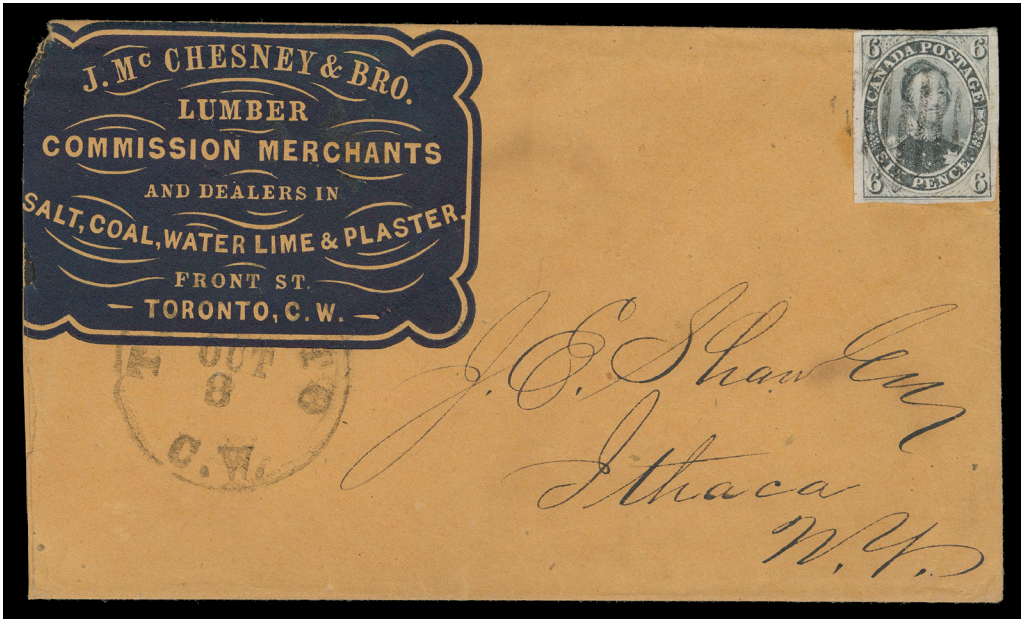 J. Mc CHESNEY & BRO.
LUMBER
COMMISSION MERCHANTS
AND DEALERS IN
SALT, COAL, WATER LIME & PLASTER.
FRONT ST.
— TORONTO, C.W. —
6 CANADA POSTAGE 6
6 SIX PENCE 6
OCT
8
C.W.
J. E. Shaw Esq
Ithaca
N.Y.